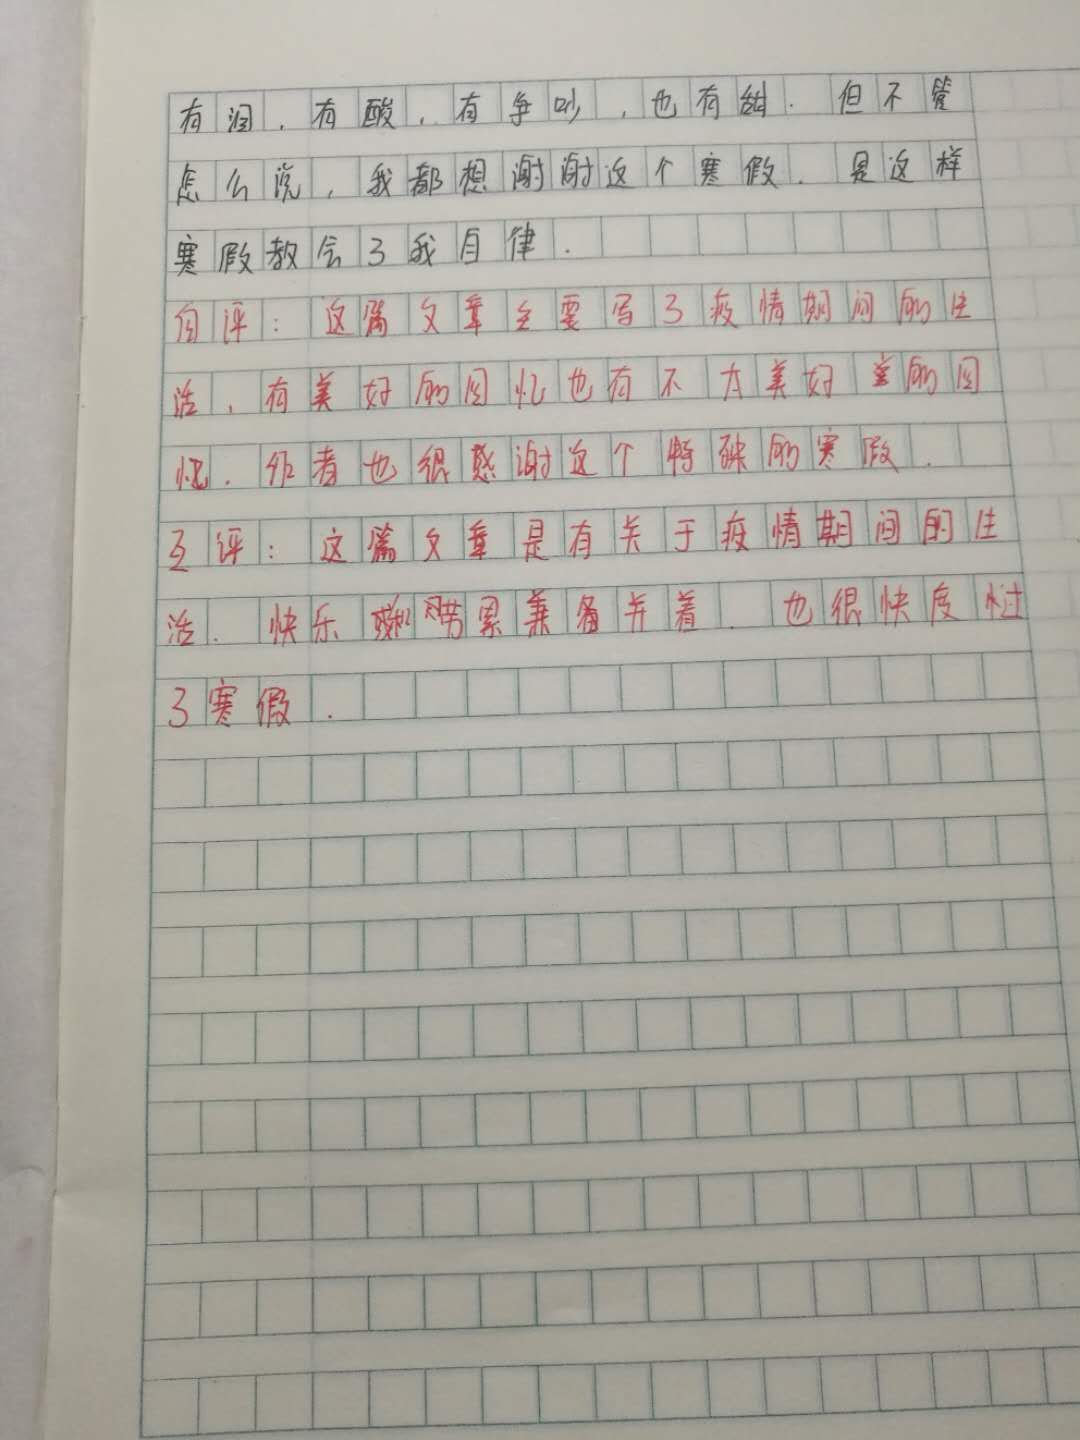 有泪,有酸,有争吵,也有甜.但不管
怎么说,我都想谢谢这个寒假.是这样
寒假教会了我自律.
自评:这篇文章主要写了疫情期间的生
活,有美好的回忆也有不太美好的回
忆.作者也很感谢这个特殊的寒假.
互评:这篇文章是有关于疫情期间的生
活.快乐劳累兼备并着.也很快度过
了寒假.